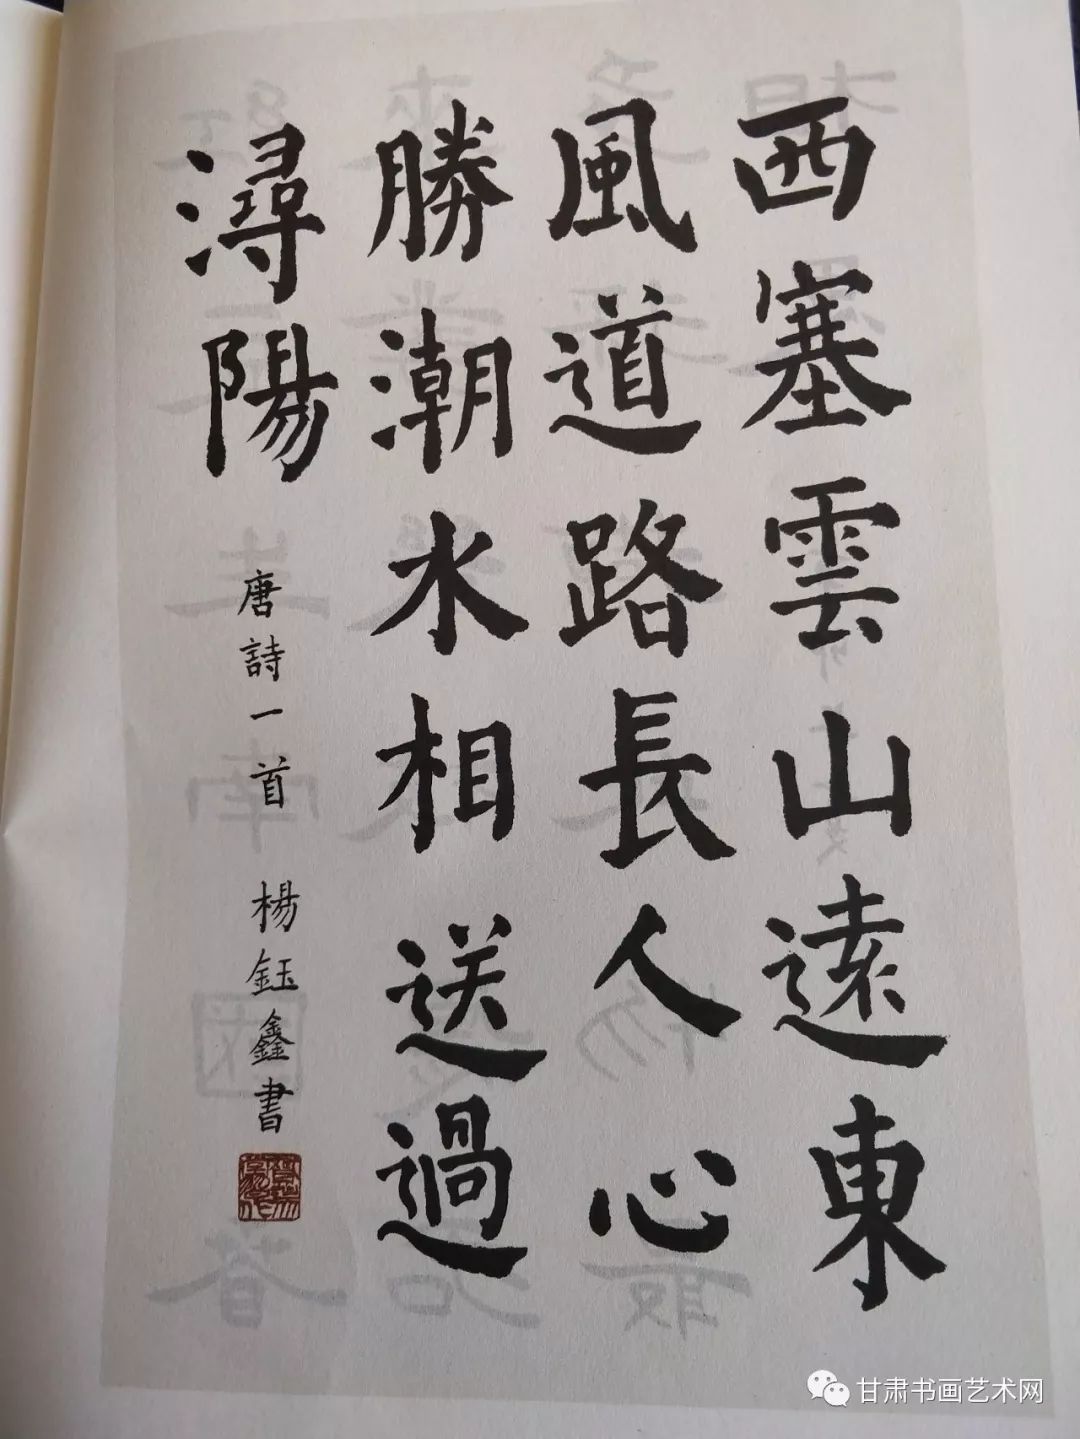 西塞雲山遠東
風道路長人心
勝潮水相送過
潯陽
唐詩一首 楊鈺鑫書
甘肃书画艺术网